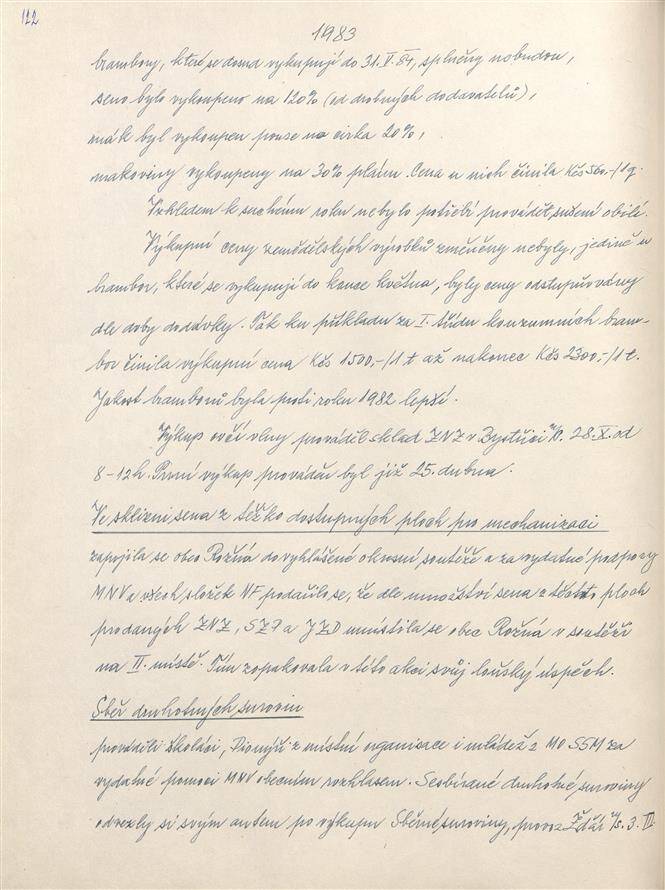 122
1983
brambory, které se dosud vykupují do 31. V. 84, splněny nebudou,
seno bylo vykoupeno na 120% (od drobných dodavatelů),
mák byl vykoupen pouze na cirka 20%,
makoviny vykoupeny na 30% plánu. Cena u nich činila Kčs 560,-/1 q.
Vzhledem k suchému roku nebylo potřebí provádět sušení obilí.
Výkupní ceny zemědělských výrobků změněny nebyly, jedině u
brambor, které se vykupují do konce května, byly ceny odstupňovány
dle doby dodávky. Tak ku příkladu za I. třídu konzumních bram-
bor činila výkupní cena Kčs 1500,-/1 t až nakonec Kčs 2300,-/1 t.
Jakost bramborů byla proti roku 1982 lepší.
Výkup ovčí vlny prováděl sklad ZNZ v Bystřici n/P. 28. X. od
8-12 h. První výkup prováděn byl již 25. dubna.
Ve sklizni sena z těžko dostupných ploch pro mechanizaci
zapojila se obec Rožná do vyhlášené okresní soutěže a za vydatné podpory
MNV a všech složek NF podařilo se, že dle množství sena z těchto ploch
prodaných ZNZ, SZP a JZD umístila se obec Rožná v soutěži
na II. místě. Tím zopakovala v této akci svůj loňský úspěch.
Sběr druhotných surovin
prováděli školáci, Pionýři z místní organisace i mládež z MO SSM za
vydatné pomoci MNV obecním rozhlasem. Sesbírané druhotné suroviny
odvezly si svým autem po výkupu Sběrné suroviny, provoz Žďár n/S. 3. III.